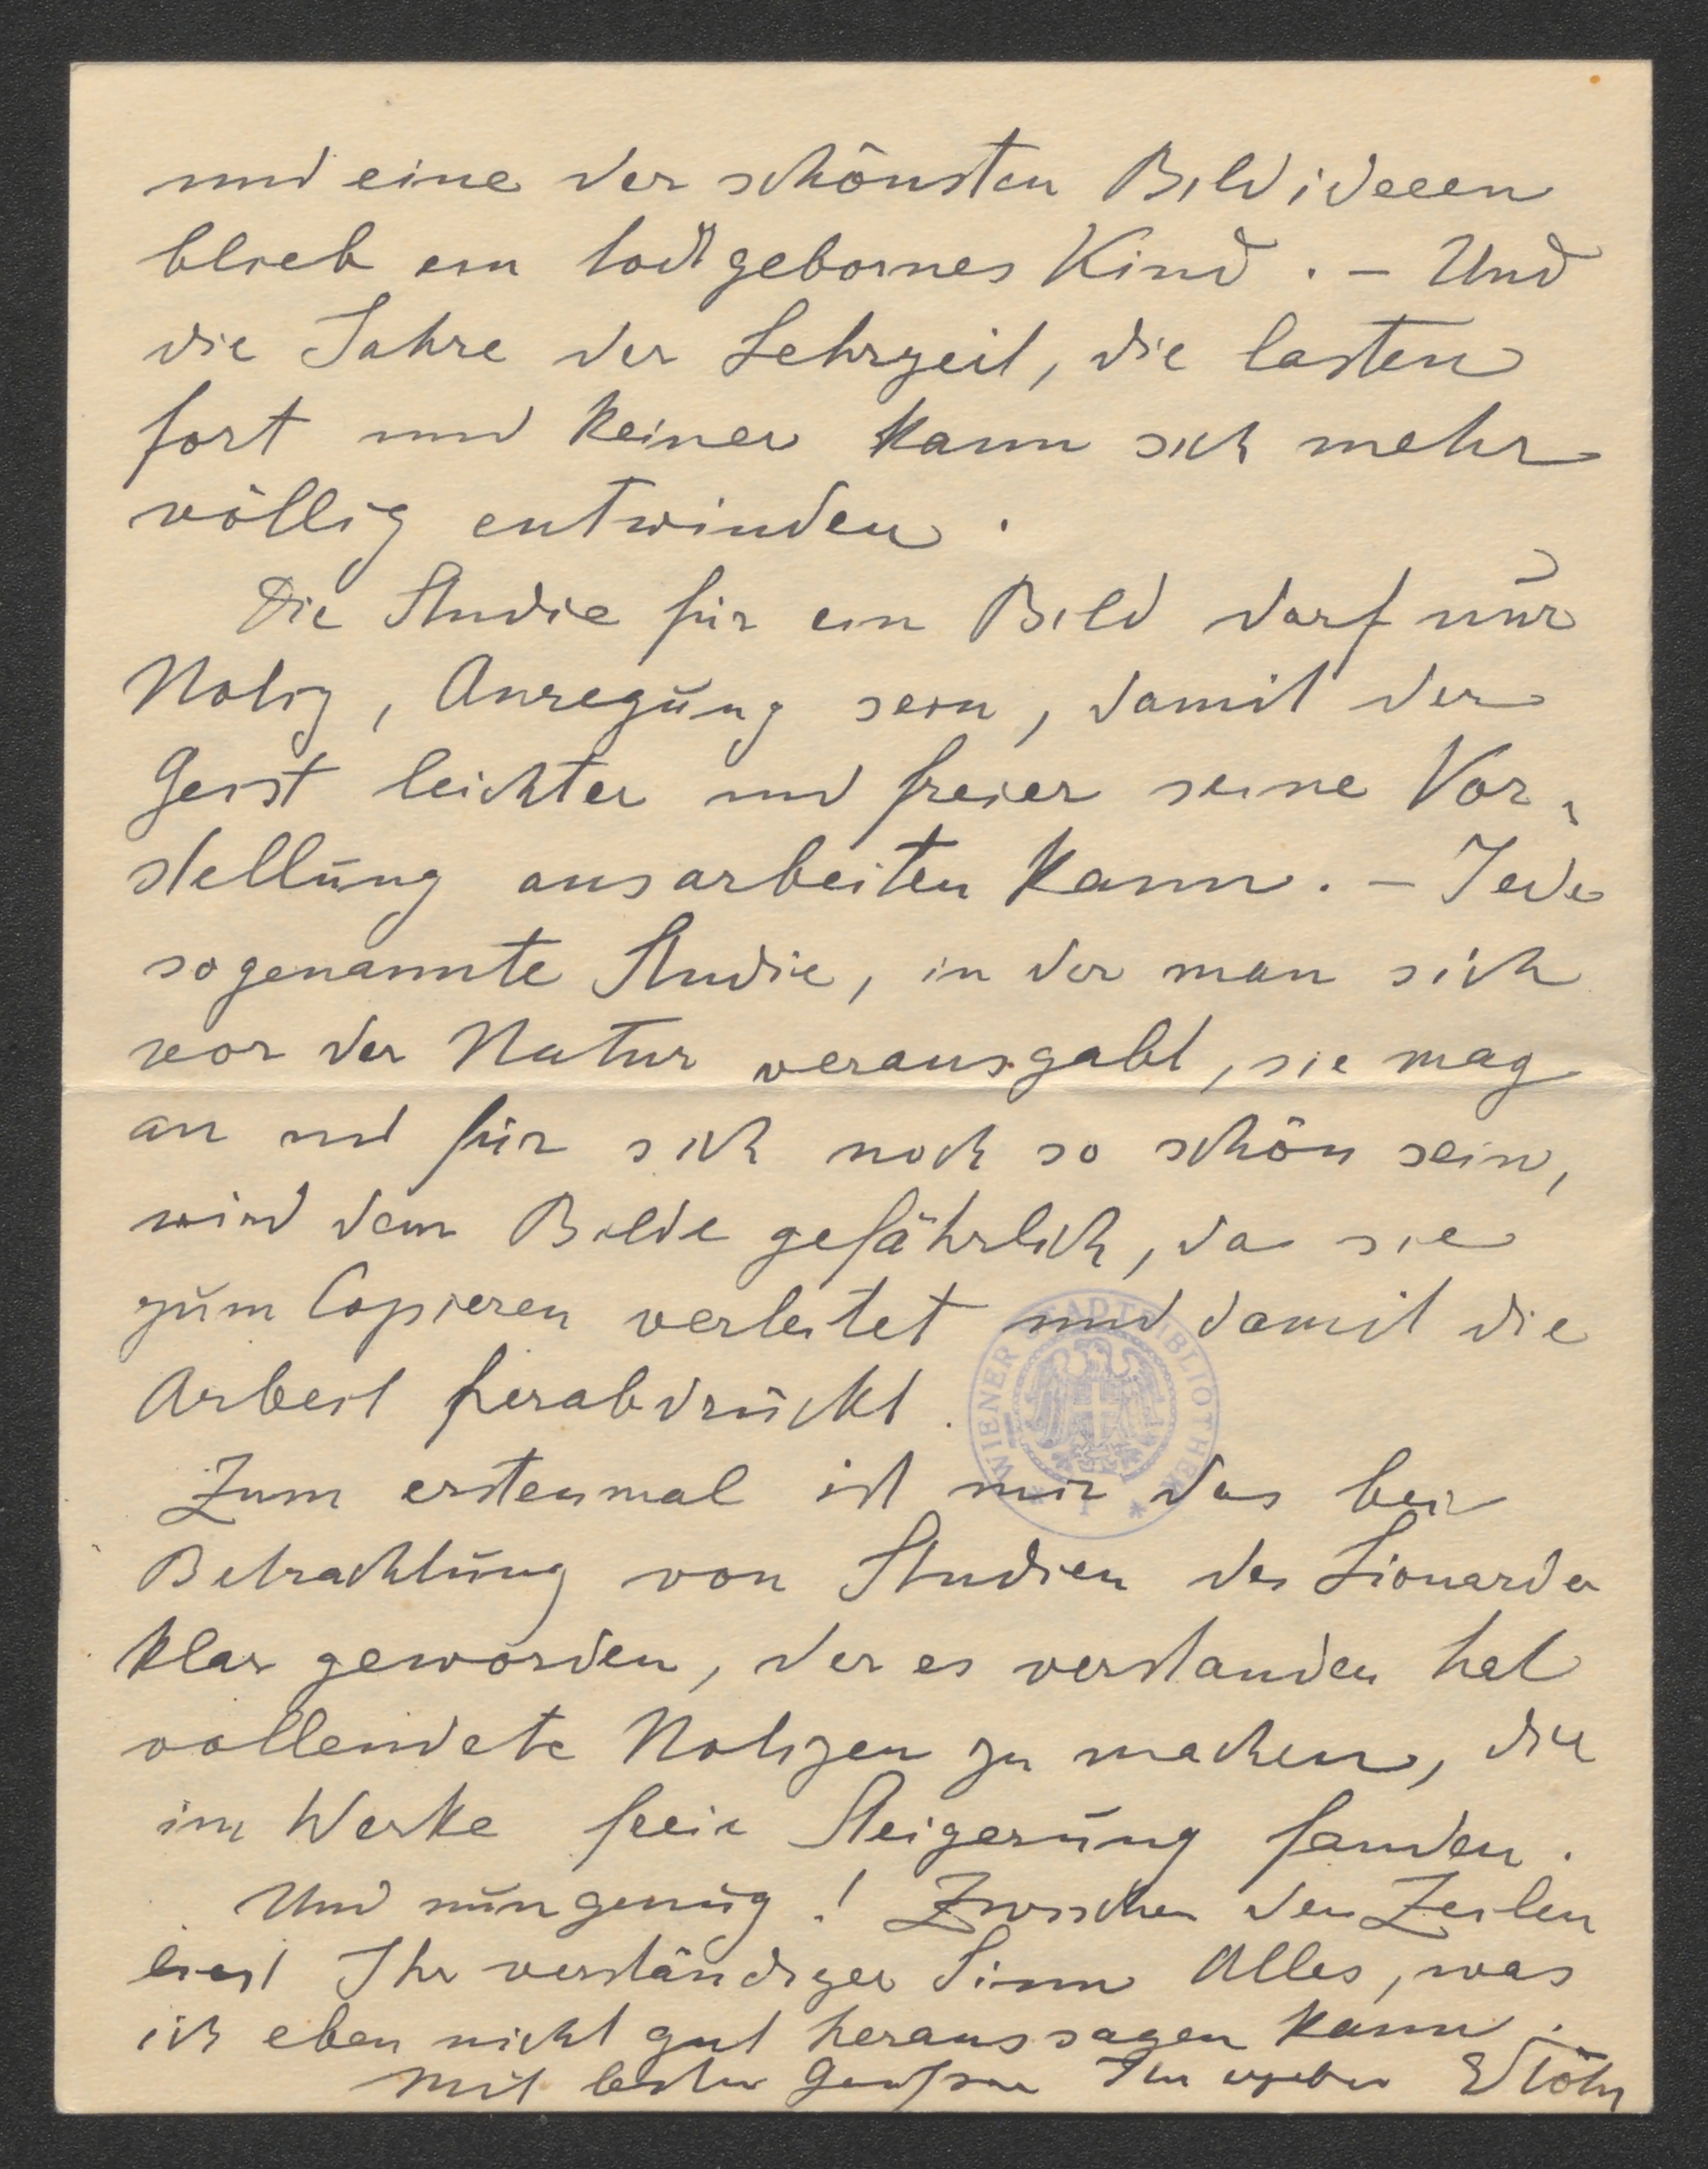 und eine der schönsten Bildideeen
blieb ein todtgebornes Kind. – Und
die Jahre der Lehrzeit, die lasten
fort und keiner kann sich mehr
völlig entwinden.
Die Studie für ein Bild darf nur
Notiz, Anregung sein, damit der
Geist leichter und freier seine Vor-
stellung ausarbeiten kann. – Jede
sogenannte Studie, in der man sich
vor der Natur verausgabt, sie mag
an und für sich noch so schön sein,
wird dem Bilde gefährlich, da sie
zum Copieren verleitet und damit die
Arbeit herabdrückt.
Zum erstenmal ist mir das bei
Betrachtung von Studien des Lionardo
klar geworden, der es verstanden hat
vollendete Notizen zu machen, die
im Werke freie Steigerung fanden.
Und nun genug! Zwischen den Zeilen
liest Ihr verständiger Sinn Alles, was
ich eben nicht gut heraussagen kann.
Mit besten Grüssen Ihr ergebener EStöhr
WIENER STADTBIBLIOTHEK